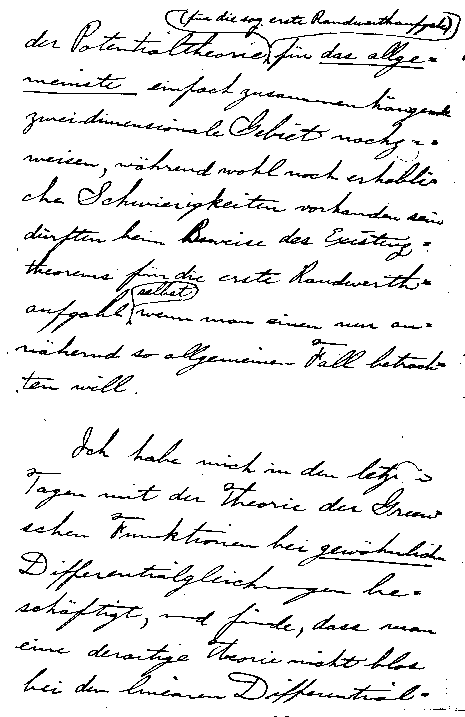 (für die sog. erste Randwerthaufgabe)
der Potentialtheorie für das allge-
meinste einfach zusammenhängende
zweidimensionale Gebiet nachzu-
weisen, während wohl noch erhebli-
che Schwierigkeiten vorhanden sein
dürften beim Beweise des Existenz-
theorems für die erste Randwerth-
selbst
aufgabe wenn man einen nur an-
nähernd so allgemeinen Fall betrach-
ten will.
Ich habe mich in den letzten
Tagen mit der Theorie der Green'
schen Funktionen bei gewöhnlichen
Differentialgleichungen be-
schäftigt, und finde, dass man
eine derartige Theorie nicht blos
bei den linearen Differential-